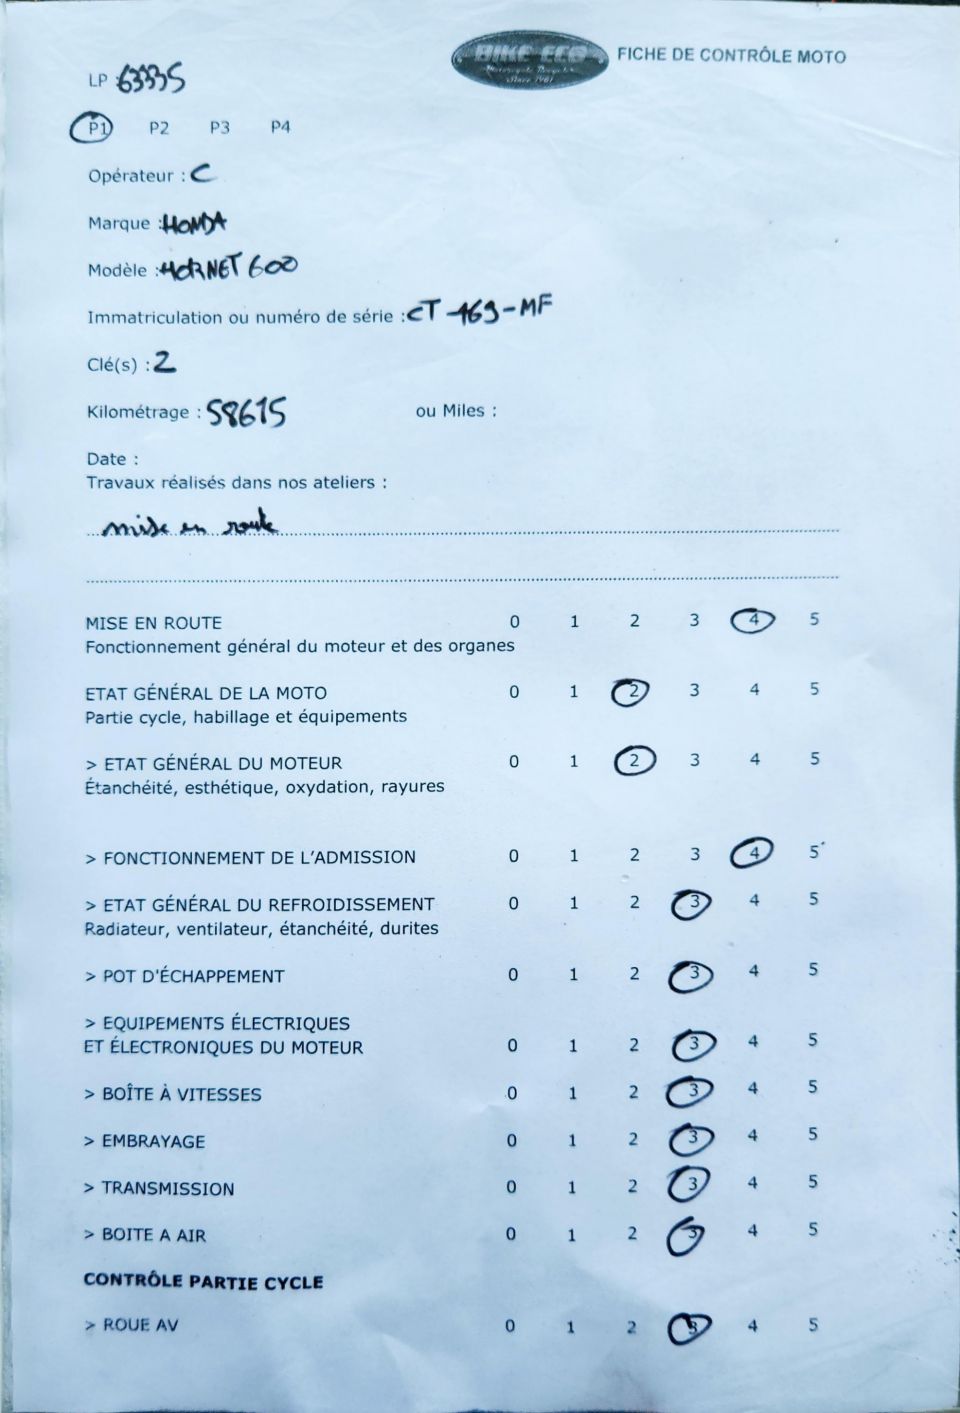 BIKE ECO
Motorcycle Recycler
Since 1981
FICHE DE CONTRÔLE MOTO
LP : 63335
P1 P2 P3 P4
Opérateur : C
Marque : HONDA
Modèle : HORNET 600
Immatriculation ou numéro de série : CT-469-MF
Clé(s) : 2
Kilométrage : 58615 ou Miles :
Date :
Travaux réalisés dans nos ateliers :
mise en route
MISE EN ROUTE 0 1 2 3 4 5
Fonctionnement général du moteur et des organes
ETAT GÉNÉRAL DE LA MOTO 0 1 2 3 4 5
Partie cycle, habillage et équipements
> ETAT GÉNÉRAL DU MOTEUR 0 1 2 3 4 5
Étanchéité, esthétique, oxydation, rayures
> FONCTIONNEMENT DE L'ADMISSION 0 1 2 3 4 5
> ETAT GÉNÉRAL DU REFROIDISSEMENT 0 1 2 3 4 5
Radiateur, ventilateur, étanchéité, durites
> POT D'ÉCHAPPEMENT 0 1 2 3 4 5
> EQUIPEMENTS ÉLECTRIQUES
ET ÉLECTRONIQUES DU MOTEUR 0 1 2 3 4 5
> BOÎTE À VITESSES 0 1 2 3 4 5
> EMBRAYAGE 0 1 2 3 4 5
> TRANSMISSION 0 1 2 3 4 5
> BOITE A AIR 0 1 2 3 4 5
CONTRÔLE PARTIE CYCLE
> ROUE AV 0 1 2 3 4 5